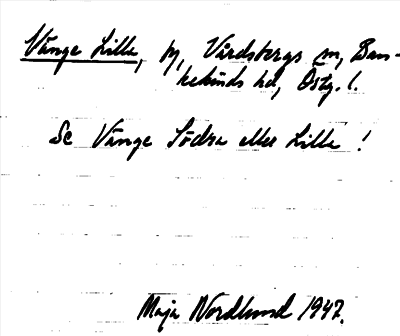 Vånge Lilla, by, Vårdsbergs sn, Ban-
kekinds hd, Östg. l.
Se Vånge Södra eller Lilla !
Maja Nordlund 1947.